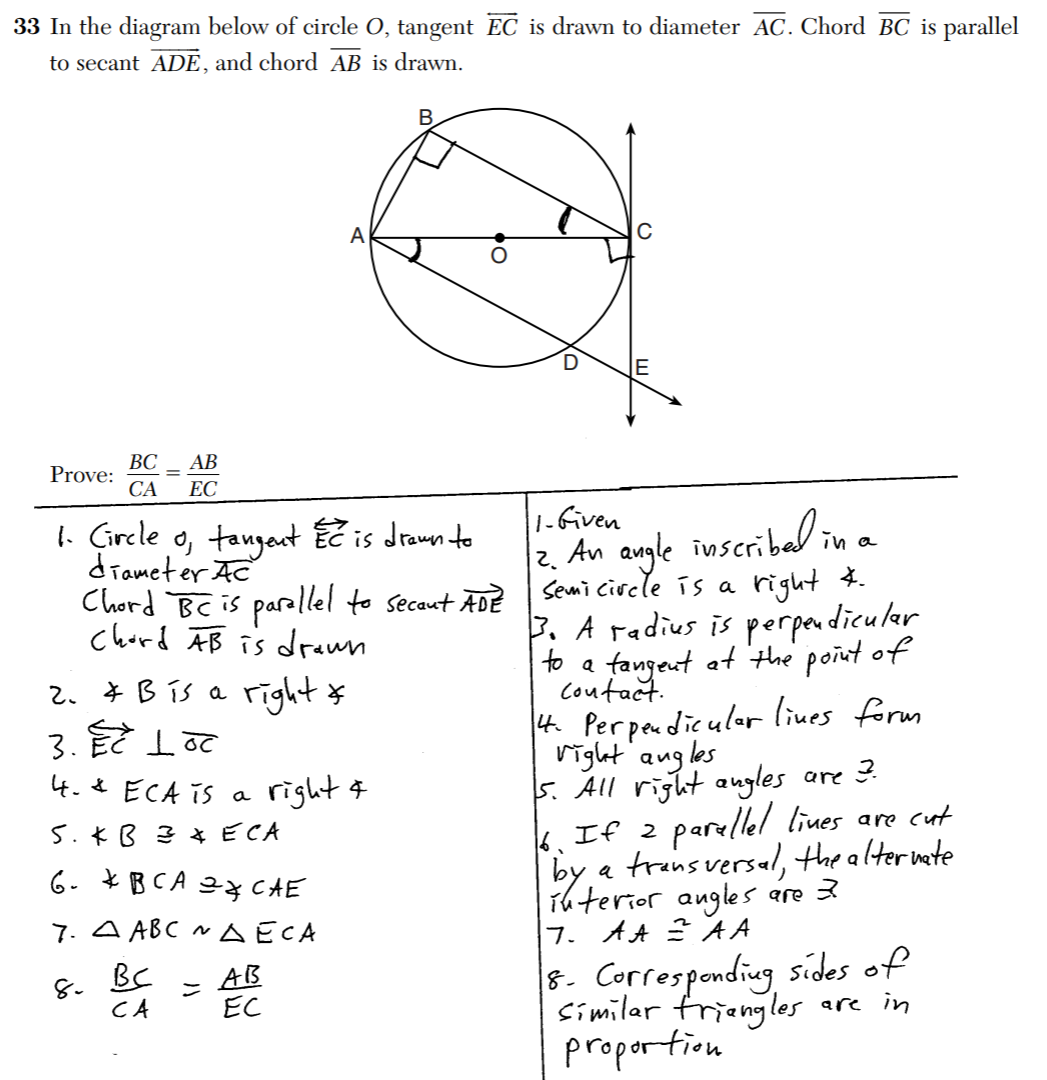 33 In the diagram below of circle O, tangent EC is drawn to diameter AC. Chord BC is parallel
to secant ADE, and chord AB is drawn.
B
A
O
C
D
E
Prove: BC/CA = AB/EC
1. Circle O, tangent EC is drawn to
diameter AC
Chord BC is parallel to secant ADE
Chord AB is drawn
2. ∡ B is a right ∡
3. EC ⊥ OC
4. ∡ ECA is a right ∡
5. ∡ B ≅ ∡ ECA
6. ∡ BCA ≅ ∡ CAE
7. △ ABC ~ △ ECA
8. BC/CA = AB/EC
1. Given
2. An angle inscribed in a
semicircle is a right ∡.
3. A radius is perpendicular
to a tangent at the point of
contact.
4. Perpendicular lines form
right angles
5. All right angles are ≅.
6. If 2 parallel lines are cut
by a transversal, the alternate
interior angles are ≅
7. AA ≅ AA
8. Corresponding sides of
similar triangles are in
proportion